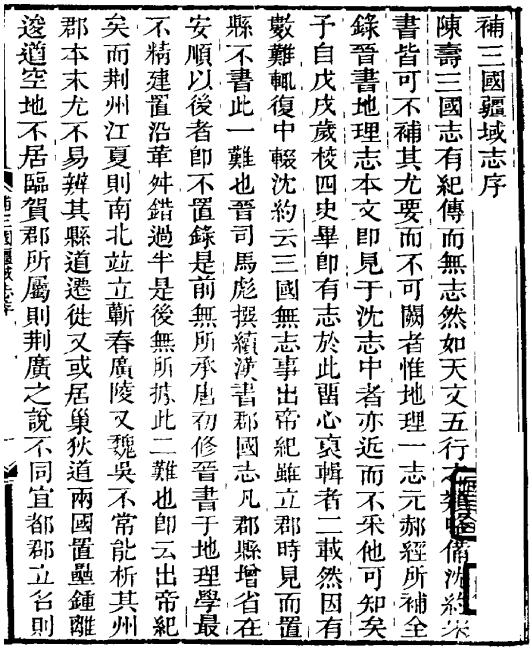 補三國疆域志序
陳壽三國志有紀傳而無志然如天文五行之類略備沈約宋
書皆可不補其尤要而不可闕者惟地理一志元郝經所補全
錄晉書地理志本文卽見于沈志中者亦近而不采他可知矣
子自戊戌歲校四史畢卽有志於此畱心裒輯者二載然因有
數難輒復中輟沈約云三國無志事出帝紀雖立郡時見而置
縣不書此一難也晉司馬彪撰續漢書郡國志凡郡縣增省在
安順以後者卽不置錄是前無所承唐初修晉書于地理學最
不精建置沿革舛錯過半是後無所據此二難也卽云出帝紀
矣而荆州江夏則南北竝立蘄春廣陵又魏吳不常能析其州
郡本末尤不易辨其縣道遷徙又或居巢狄道兩國置壘鍾離
逡遒空地不居臨賀郡所屬則荆廣之說不同宜都郡立名則
補三國疆域志序